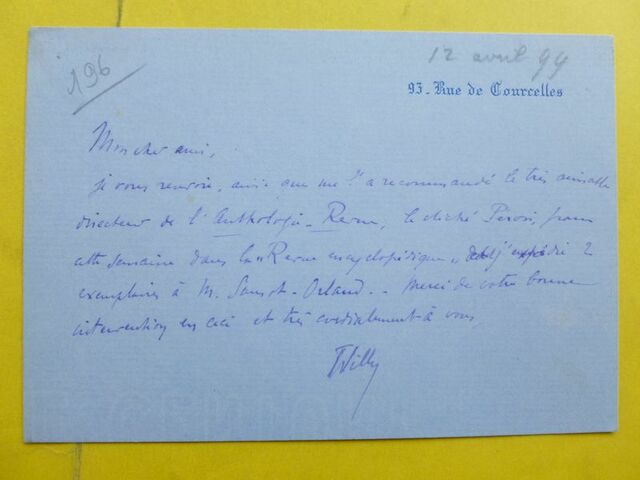 196
12 avril 99
93 - Rue de Courcelles
Mon cher ami,
je vous renvoie, ainsi que me l'a recommandé le très aimable
directeur de l'Anthologie-Revue, le cliché Perosi, paru
cette semaine dans la "Revue encyclopédique" dont j'expédie 2
exemplaires à M. Sansot-Orland. - Merci de votre bonne
intervention en ceci et très cordialement à vous,
Willy